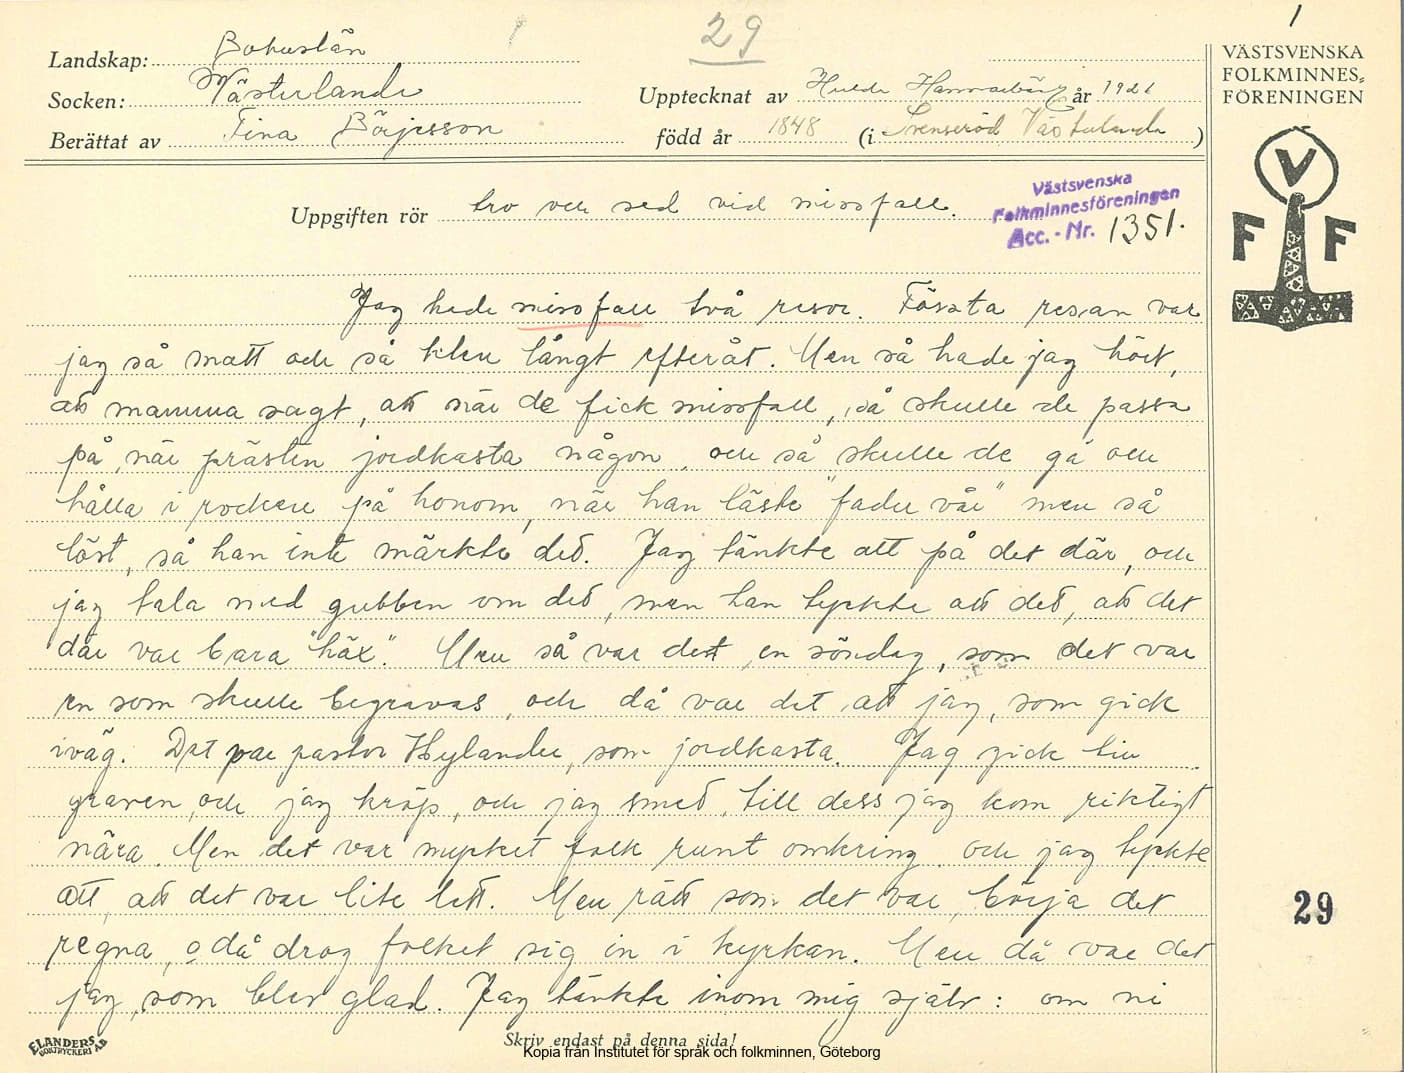 29
1
Landskap: Bohuslän
Socken: Västerlanda
Upptecknat av Hulda Hammarbäck år 1926
Berättat av Tina Börjesson född år 1848 (i Svenseröd Västerlanda)
VÄSTSVENSKA
FOLKMINNES-
FÖRENINGEN
V
F F
Uppgiften rör tro och sed vid missfall.
Västsvenska
Folkminnesföreningen
Acc. - Nr. 1351.
Jag hade missfall två resor. Första resan var
jag så matt och så klen långt efteråt. Men så hade jag hört,
att mamma sagt, att när de fick missfall, så skulle de passa
på, när prästen jordkasta någon, och så skulle de gå och
hålla i rocken på honom, när han läste "fader vår" men så
löst, så han inte märkte det. Jag tänkte att på det där, och
jag tala med gubben om det, men han tyckte att det, att det
där var bara "häx". Men så var det en söndag, som det var
en som skulle begravas, och då var det att jag, som gick
iväg. Det var pastor Hylander, som jordkasta. Jag gick till
graven, och jag kröp, och jag smed, till dess jag kom riktigt
nära. Men det var mycket folk runt omkring, och jag tyckte
att, att det var lite lett. Men rätt som det var, börja det
regna, o då drog folket sig in i kyrkan. Men då var det
jag, som blev glad. Jag tänkte inom mig själv: om ni
29
ELANDERS
BOKTRYCKERI AB
Skriv endast på denna sida!
Kopia från Institutet för språk och folkminnen, Göteborg